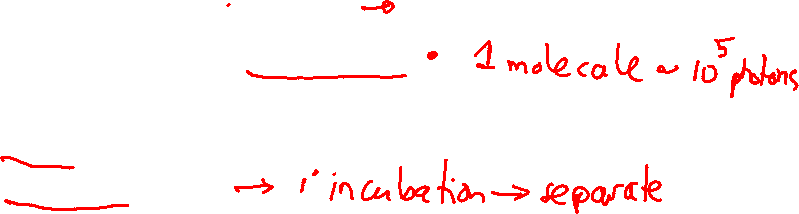 • 1 molecule ~ 10^5 photons
→ 1' incubation → separate